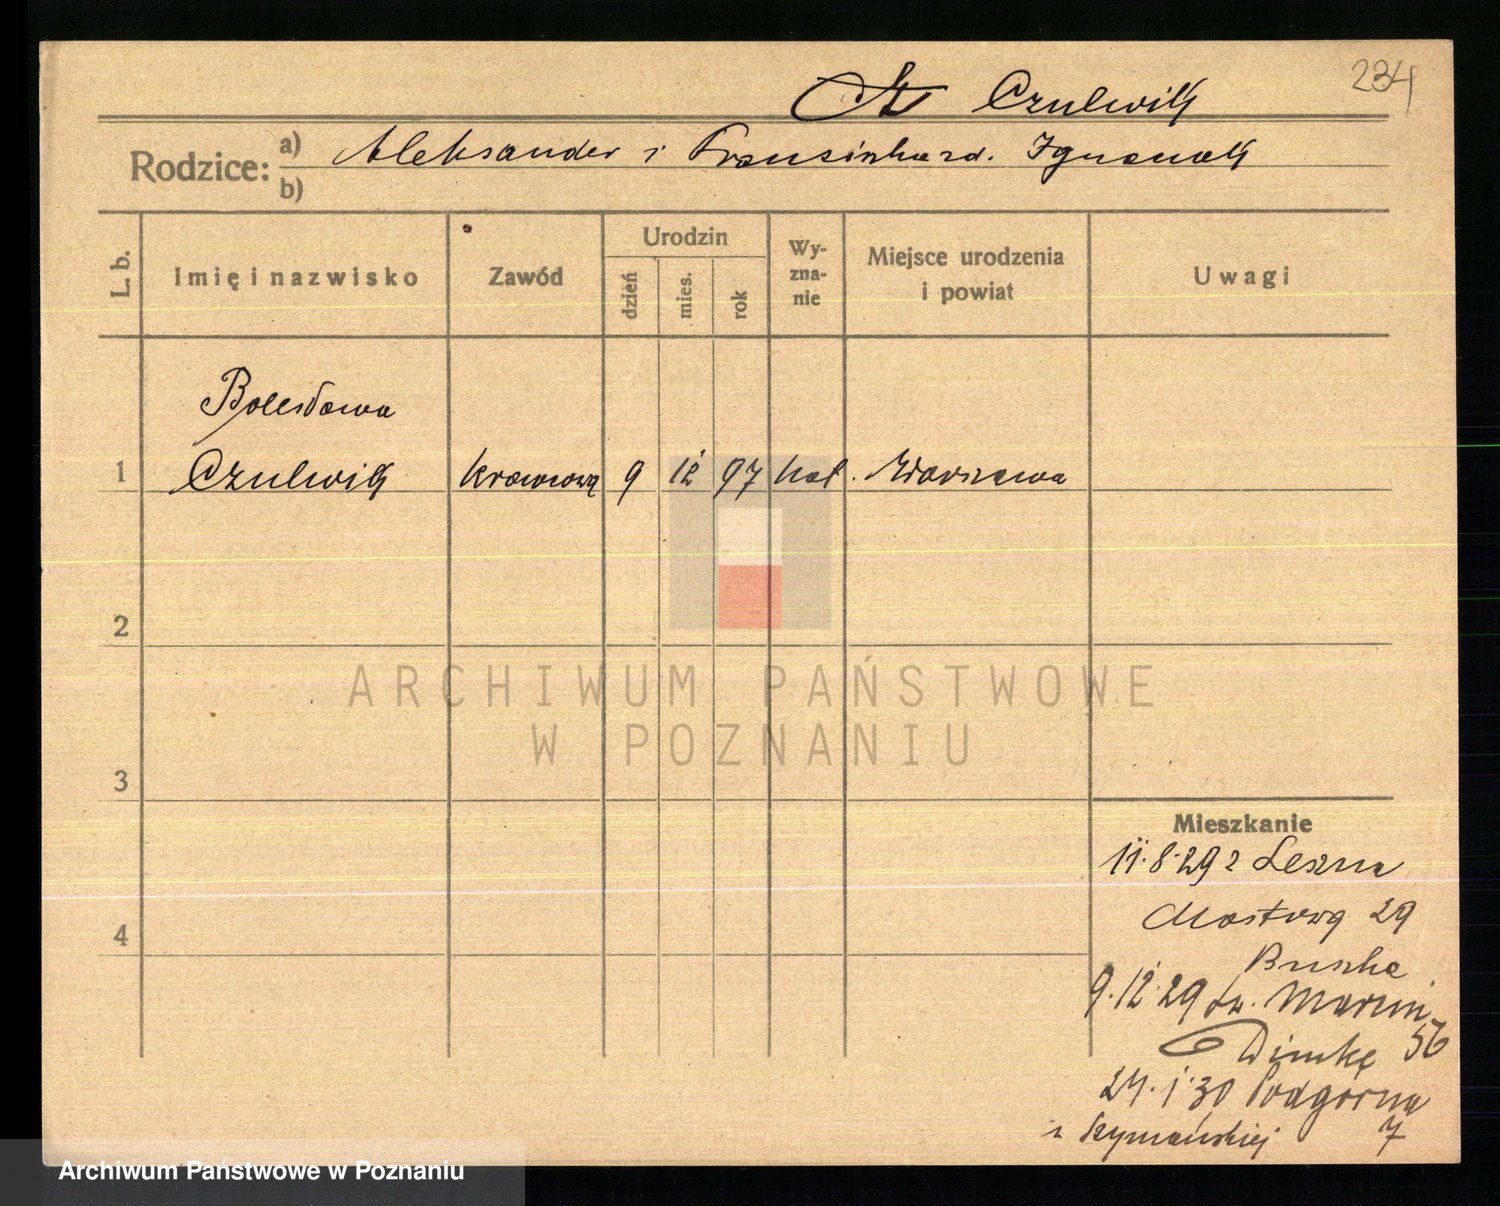 234
Czulwik
Rodzice: a) Aleksander i Franciszka zd. Ignasiak
b)
L. b.
Imię i nazwisko
Zawód
Urodzin
dzień
mies.
rok
Wy-
zna-
nie
Miejsce urodzenia
i powiat
Uwagi
Bolesława
1 Czulwik krawcowa 9 12 97 kat. Warszawa
2
3
4
ARCHIWUM PAŃSTWOWE
W POZNANIU
Mieszkanie
11.8.29 z Leszna
Mostowa 29
9.12.29 św. Marcin
56
24.1.30 Podgórna
7
Szymańskiej
Archiwum Państwowe w Poznaniu